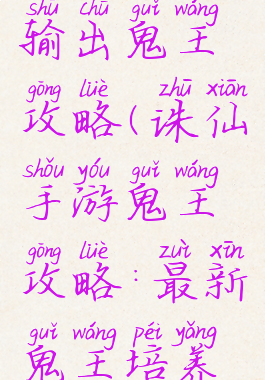 shū chū guǐ wáng
输出鬼王
gōng lüè zhū xiān
攻略(诛仙
shǒu yóu guǐ wáng
手游鬼王
gōng lüè zuì xīn
攻略:最新
guǐ wáng péi yǎng
鬼王培养